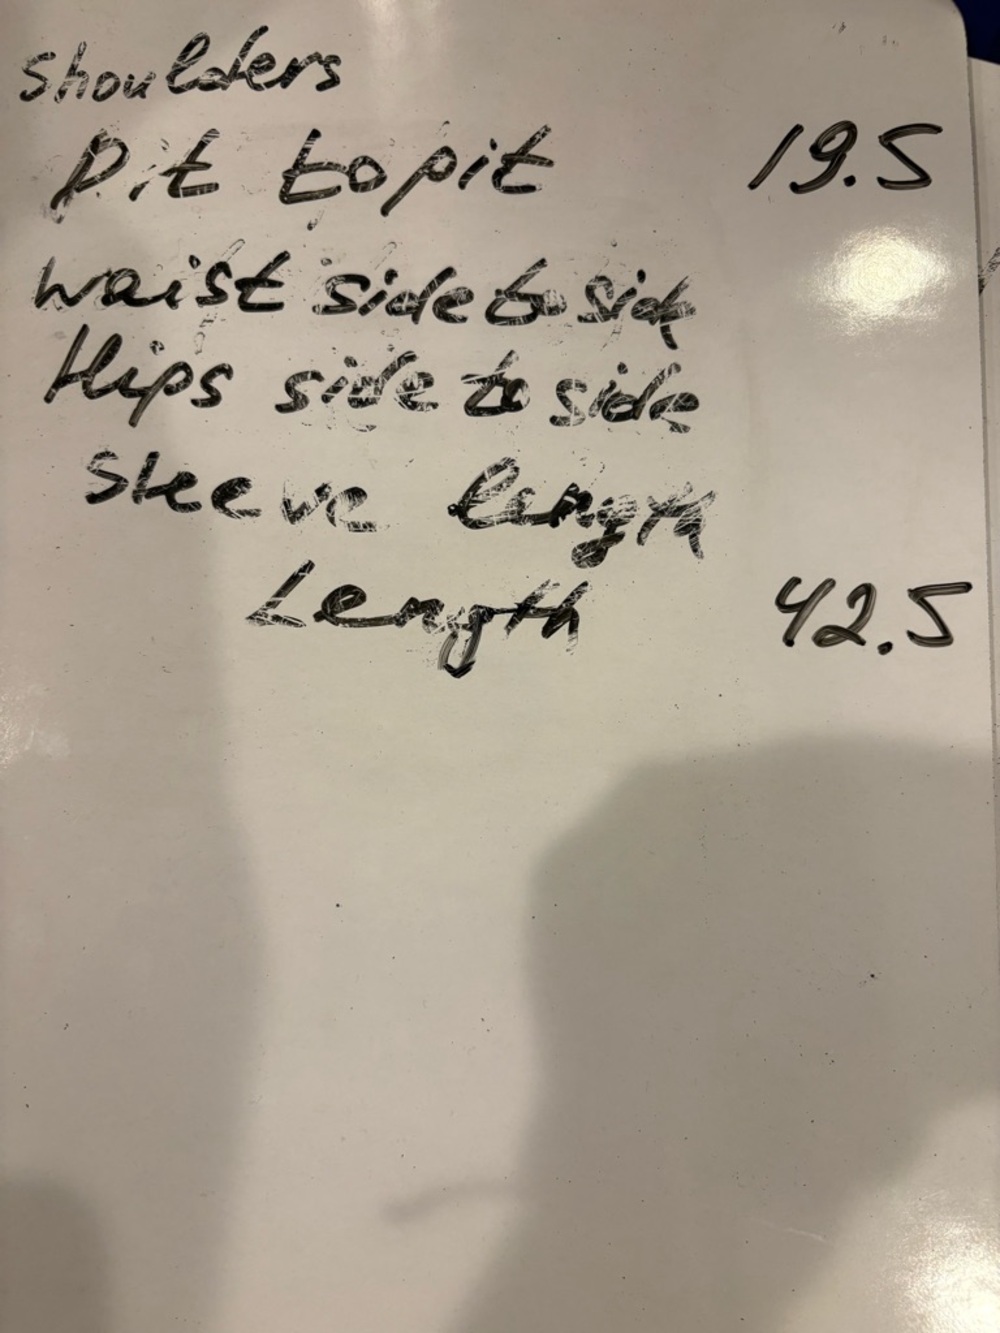 Shoulders
Pit to pit 19.5
waist side to side
Hips side to side
Sleeve length
Length 42.5